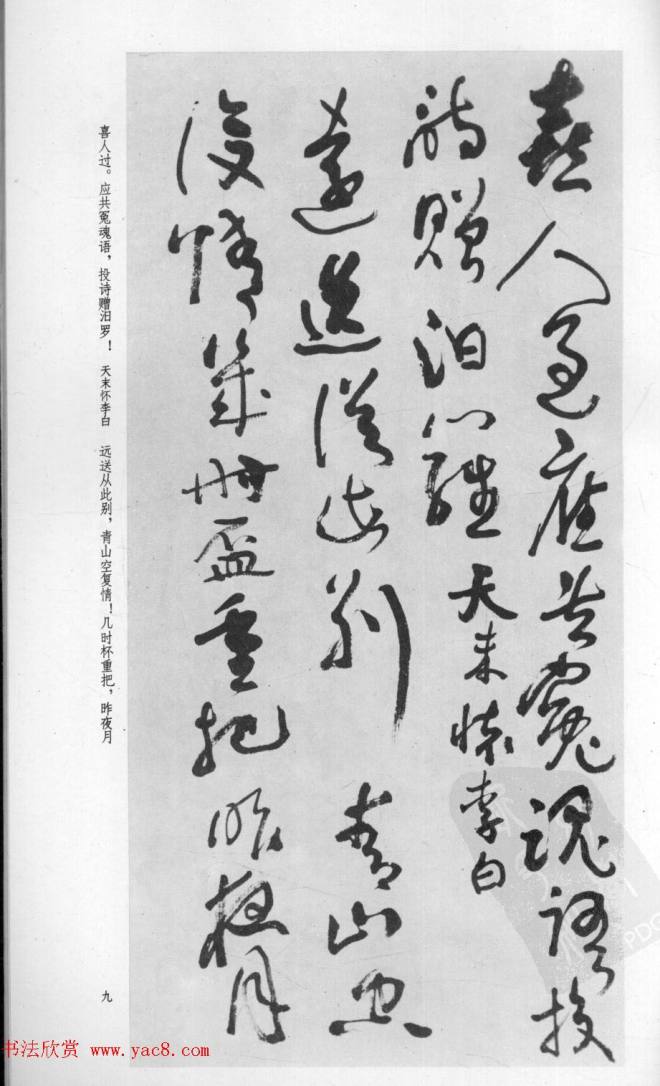 喜人過應共冤魂語投
詩贈汨羅天末懷李白
遠送從此別青山空
復情幾時盃重把昨夜月
喜人过。应共冤魂语，投诗赠汨罗！　天末怀李白　远送从此别，青山空复情！几时杯重把，昨夜月
九
书法欣赏 www.yac8.com